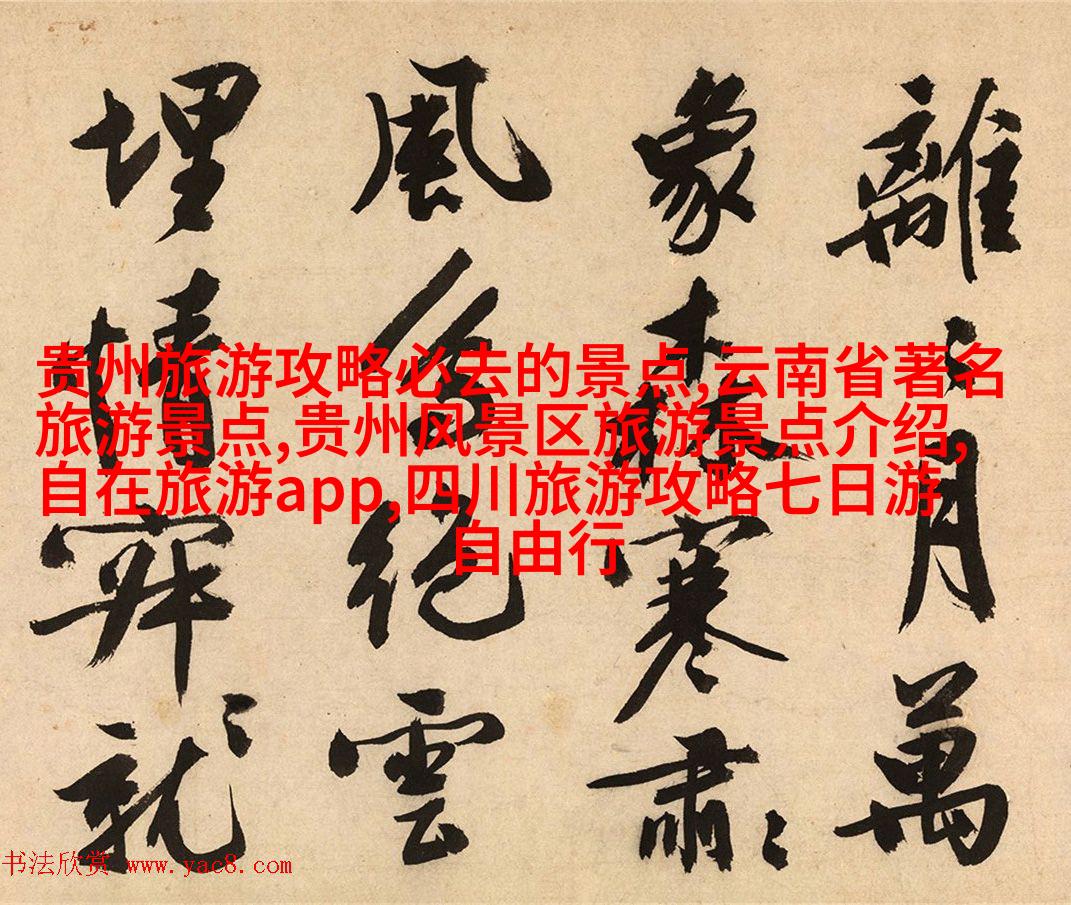 離〻月萬
象森寒肅〻
風絕雲
埋情就〻
贵州旅游攻略必去的景点,云南省著名
旅游景点,贵州风景区旅游景点介绍,
自在旅游app,四川旅游攻略七日游
自由行
书法欣赏 www.yac8.com